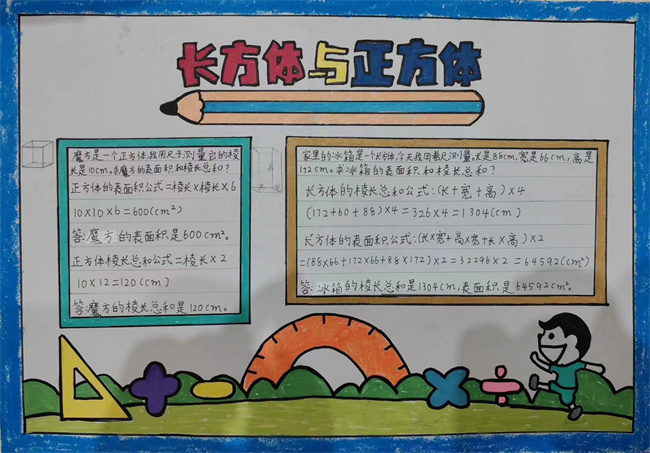 长方体与正方体
魔方是一个正方体,我用尺子测量它的棱
长是10cm。求魔方的表面积和棱长总和?
正方体的表面积公式=棱长×棱长×6
10×10×6=600(cm²)
答:魔方的表面积是600cm²。
正方体棱长总和公式=棱长×2
10×12=120(cm)
答:魔方的棱长总和是120cm。
家里的冰箱是一个长方体,今天我用卷尺测量。长是88cm,宽是66cm,高是
172cm。求冰箱的表面积和棱长总和?
长方体的棱长总和公式:(长+宽+高)×4
(172+60+88)×4=326×4=1304(cm)
长方体的表面积公式:(长×宽+高×宽+长×高)×2
=(88×66+172×66+88×172)×2=32296×2=64592(cm²)
答:冰箱的棱长总和是1304cm,表面积是64592cm²。